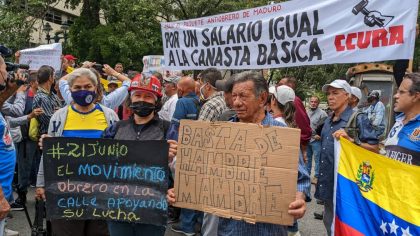 NO AL PAQUETE ANTIOBRERO DE MADURO
POR UN SALARIO IGUAL
A LA CANASTA BÁSICA
CCURA
#21JUNIO
EL MOVIMIENTO
OBRERO EN LA
CALLE APOYANDO
SU LUCHA
BASTA DE
HAMBRE
MAMBRE